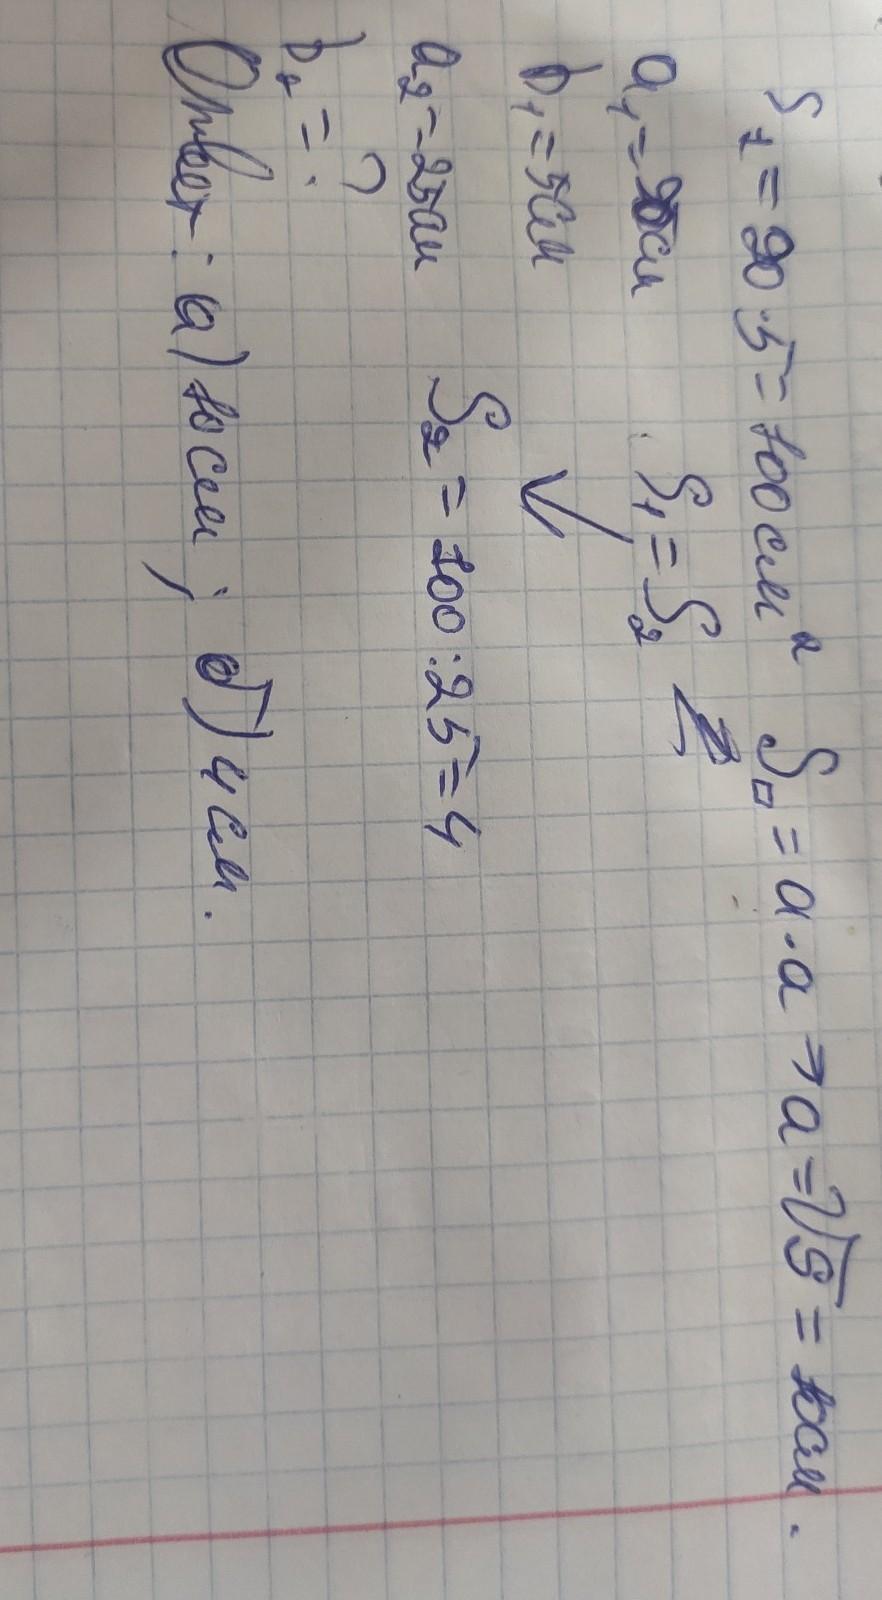 S₁ = 20 · 5 = 100 см² S□ = a · a → a = √S = 10 см.
a₁ = см S₁ = S₂
b₁ = 5 см
a₂ = 25 см S₂ = 100 : 25 = 4
b₂ = ?
Ответ: а) 10 см; б) 4 см.